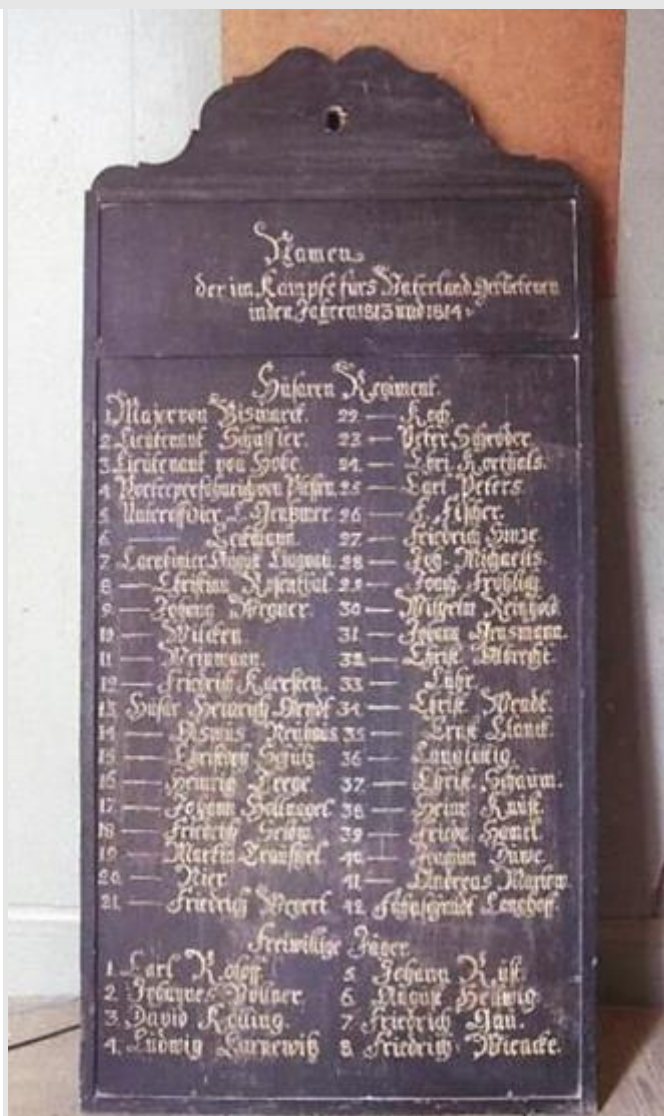 Namen
der im Kampfe fürs Vaterland Gebliebenen
in den Jahren 1813 und 1814.
Hüsaren Regiment.
1. Major von Bismarck.
2. Lieütenant Schüssler.
3. Lieütenant von Hobe.
4. von Plessen.
5. Unterofficier
6. —
7. Carabinier
8. — Christian Rosenthal
9. — Johann Wegner.
10. — Milcken
11. — Weinmann
12. — Friedrich Kaersten.
13. Hüsar Heinrich Wendt
14. — Asmus Neuhaus
15. — Christian Schultz
16. — Heinrich Zeege
17. — Johann Hollnagel
18. — Friedrich
19. — Martin
20. — Nier
21. — Friedrich Weyert
22 — Koch.
23 — Peter Schröder.
24. — Chri Korthals.
25 — Carl Peters
26 — F. Fischer.
27 — Friedrich Hinze
28 — Joh. Michaelis.
29 — Joach Fröhlich
30 — Wilhelm Reinhold
31. — Johann
32. — Christ Albrecht.
33. — Lühr.
34 — Christ Wendt.
35 — Ernst
36 —
37 — Christ Schaum.
38 — Heinr
39 — Friedr
40 — Joachim Düwe.
41 — Andreas
42. Langhoff.
Freiwillige Jäger.
1. Carl Roloff
2. Johannes Vollner.
3. David Keiling.
4. Ludwig Zarnewitz
5. Johann Rüst.
6. August Hellwig.
7. Friedrich Gau.
8. Friedrich Wiencke.